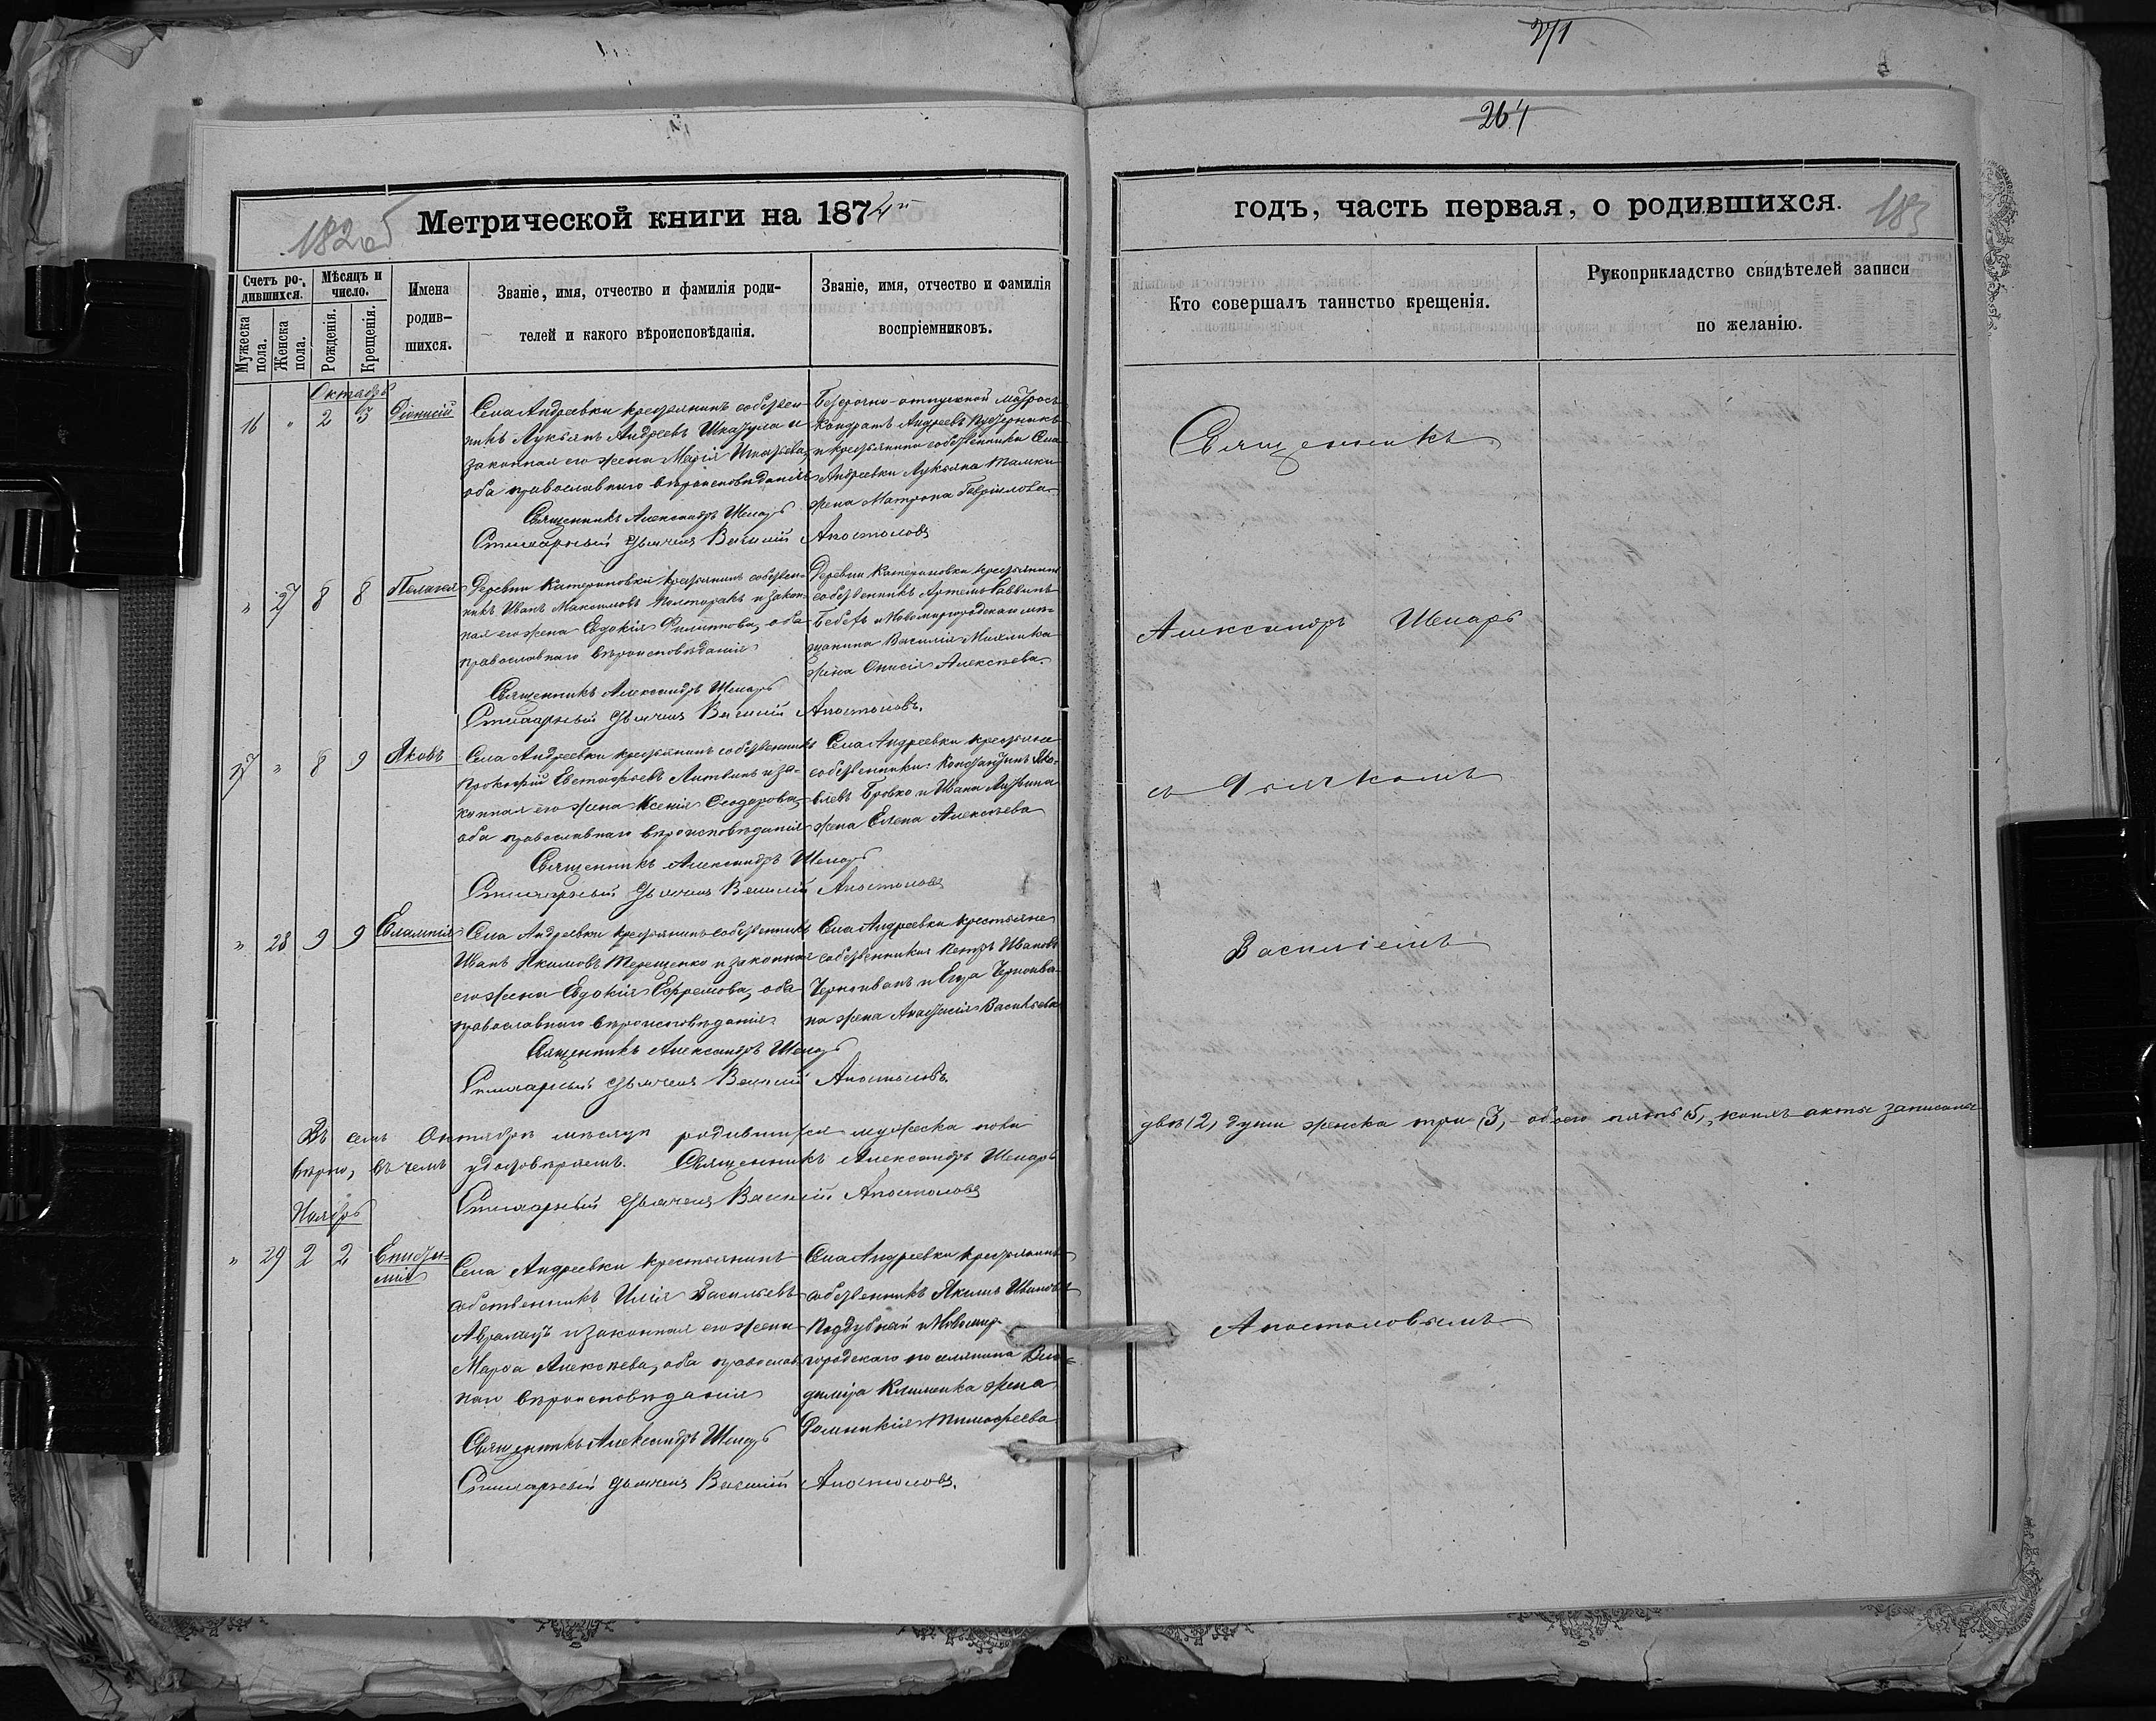 271
264
182 об
Метрической книги на 1874й
годъ, часть первая, о родившихся.
183
Счетъ родившихся.
Мѣсяцъ и число.
Мужеска пола.
Женска пола.
Рожденія.
Крещенія.
Имена родив-
шихся.
Званіе, имя, отчество и фамилія роди-
телей и какого вѣроисповѣданія.
Званіе, имя, отчество и фамилія
воспріемниковъ.
Кто совершалъ таинство крещенія.
Рукоприкладство свидѣтелей записи
по желанію.
Октябрь
16 " 2 3 Діонисій
Села Андреевки крестьянинъ собствен-
никъ Лукьянъ Андреевъ и
законная его жена Марія
оба православнаго вѣроисповѣданія
Священникъ Александръ Шепаръ
Безсрочно-отпускной матросъ
Кондратъ Андреевъ
и крестьянина собственника Села
Андреевки Лукьяна
жена Матрона Гавріилова
Стихарный дьячекъ Василій Апостоловъ
" 27 8 8 Пелагея
Деревни Катериновки крестьянинъ собствен-
никъ Иванъ Максимовъ Полторакъ и закон-
ная его жена Евдокія Филиппова, оба
православнаго вѣроисповѣданія
Священникъ Александръ Шепаръ
Деревни Катериновки крестьянинъ
собственникъ Артемъ Саввинъ
и Новомиргородскаго мѣ-
щанина Василія
жена Алексѣева.
Стихарный дьячекъ Василій Апостоловъ.
17 " 8 9 Яковъ
Села Андреевки крестьянинъ собственникъ
Прокофій Евстафьевъ Литвинъ и за-
конная его жена Ксенія Феодорова,
оба православнаго вѣроисповѣданія
Священникъ Александръ Шепаръ
Села Андреевки крестьяне
собственники: Константинъ Яко-
влевъ Бровко и Ивана Литвина
жена Елена Алексѣева
Стихарный дьячекъ Василій Апостоловъ
" 28 9 9 Евлампія
Села Андреевки крестьянинъ собственникъ
Иванъ Акимовъ Терещенко и законная
его жена Евдокія Ефремова, оба
православнаго вѣроисповѣданія
Священникъ Александръ Шепаръ
Села Андреевки крестьяне
собственники Петръ Ивановъ
Черноиванъ и Черноива-
на жена Анастасія Васильева
Стихарный дьячекъ Василій Апостоловъ.
Въ семъ Октябрѣ мѣсяцѣ родившихся мужеска пола двѣ (2) души женска три (3), обоего пять (5), коихъ акты записаны
вѣрно, въ чемъ удостовѣряемъ. Священникъ Александръ Шепаръ
Стихарный дьячекъ Василій Апостоловъ
Ноябрь
" 29 2 2
Села Андреевки крестьянинъ
собственникъ Илія Васильевъ
и законная его жена
Марфа Алексѣева, оба православ-
наго вѣроисповѣданія
Священникъ Александръ Шепаръ
Села Андреевки крестьянинъ
собственникъ Якимъ Ивановъ
Поддубный и Новомир-
городскаго поселянина Вла-
диміра Клименка жена
Домникія Тимофеева
Стихарный дьячекъ Василій Апостоловъ.
Священникъ
Александръ Шепаръ
съ Дьячкомъ
Василіемъ
Апостоловымъ